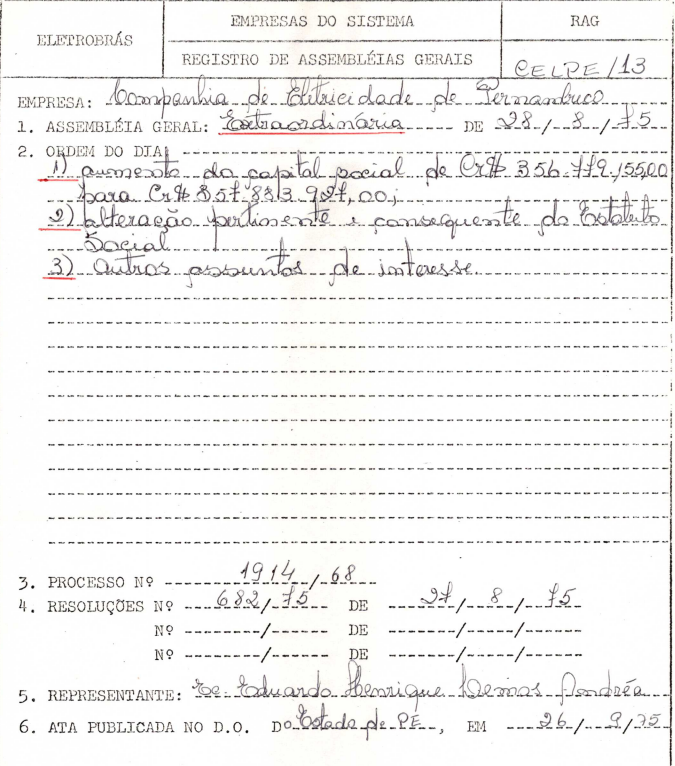 ELETROBRÁS
EMPRESAS DO SISTEMA
RAG
REGISTRO DE ASSEMBLÉIAS GERAIS
CELPE/13
EMPRESA: Companhia de Eletricidade de Pernambuco
1. ASSEMBLÉIA GERAL: Extraordinária DE 28 / 8 / 75
2. ORDEM DO DIA:
1) aumento do capital social de Cr$ 356.779.155,00
para Cr$ 357.833.927,00;
2) alteração pertinente e consequente do Estatuto
Social
3) Outros assuntos de interesse.
3. PROCESSO Nº 1914/68
4. RESOLUÇÕES Nº 682/75 DE 27/ 8 / 75
Nº ------/------ DE ------/-----/-----
Nº ------/------ DE ------/-----/-----
5. REPRESENTANTE: Eduardo Henrique
6. ATA PUBLICADA NO D.O. Do Estado de PE, EM 26/ 9/75